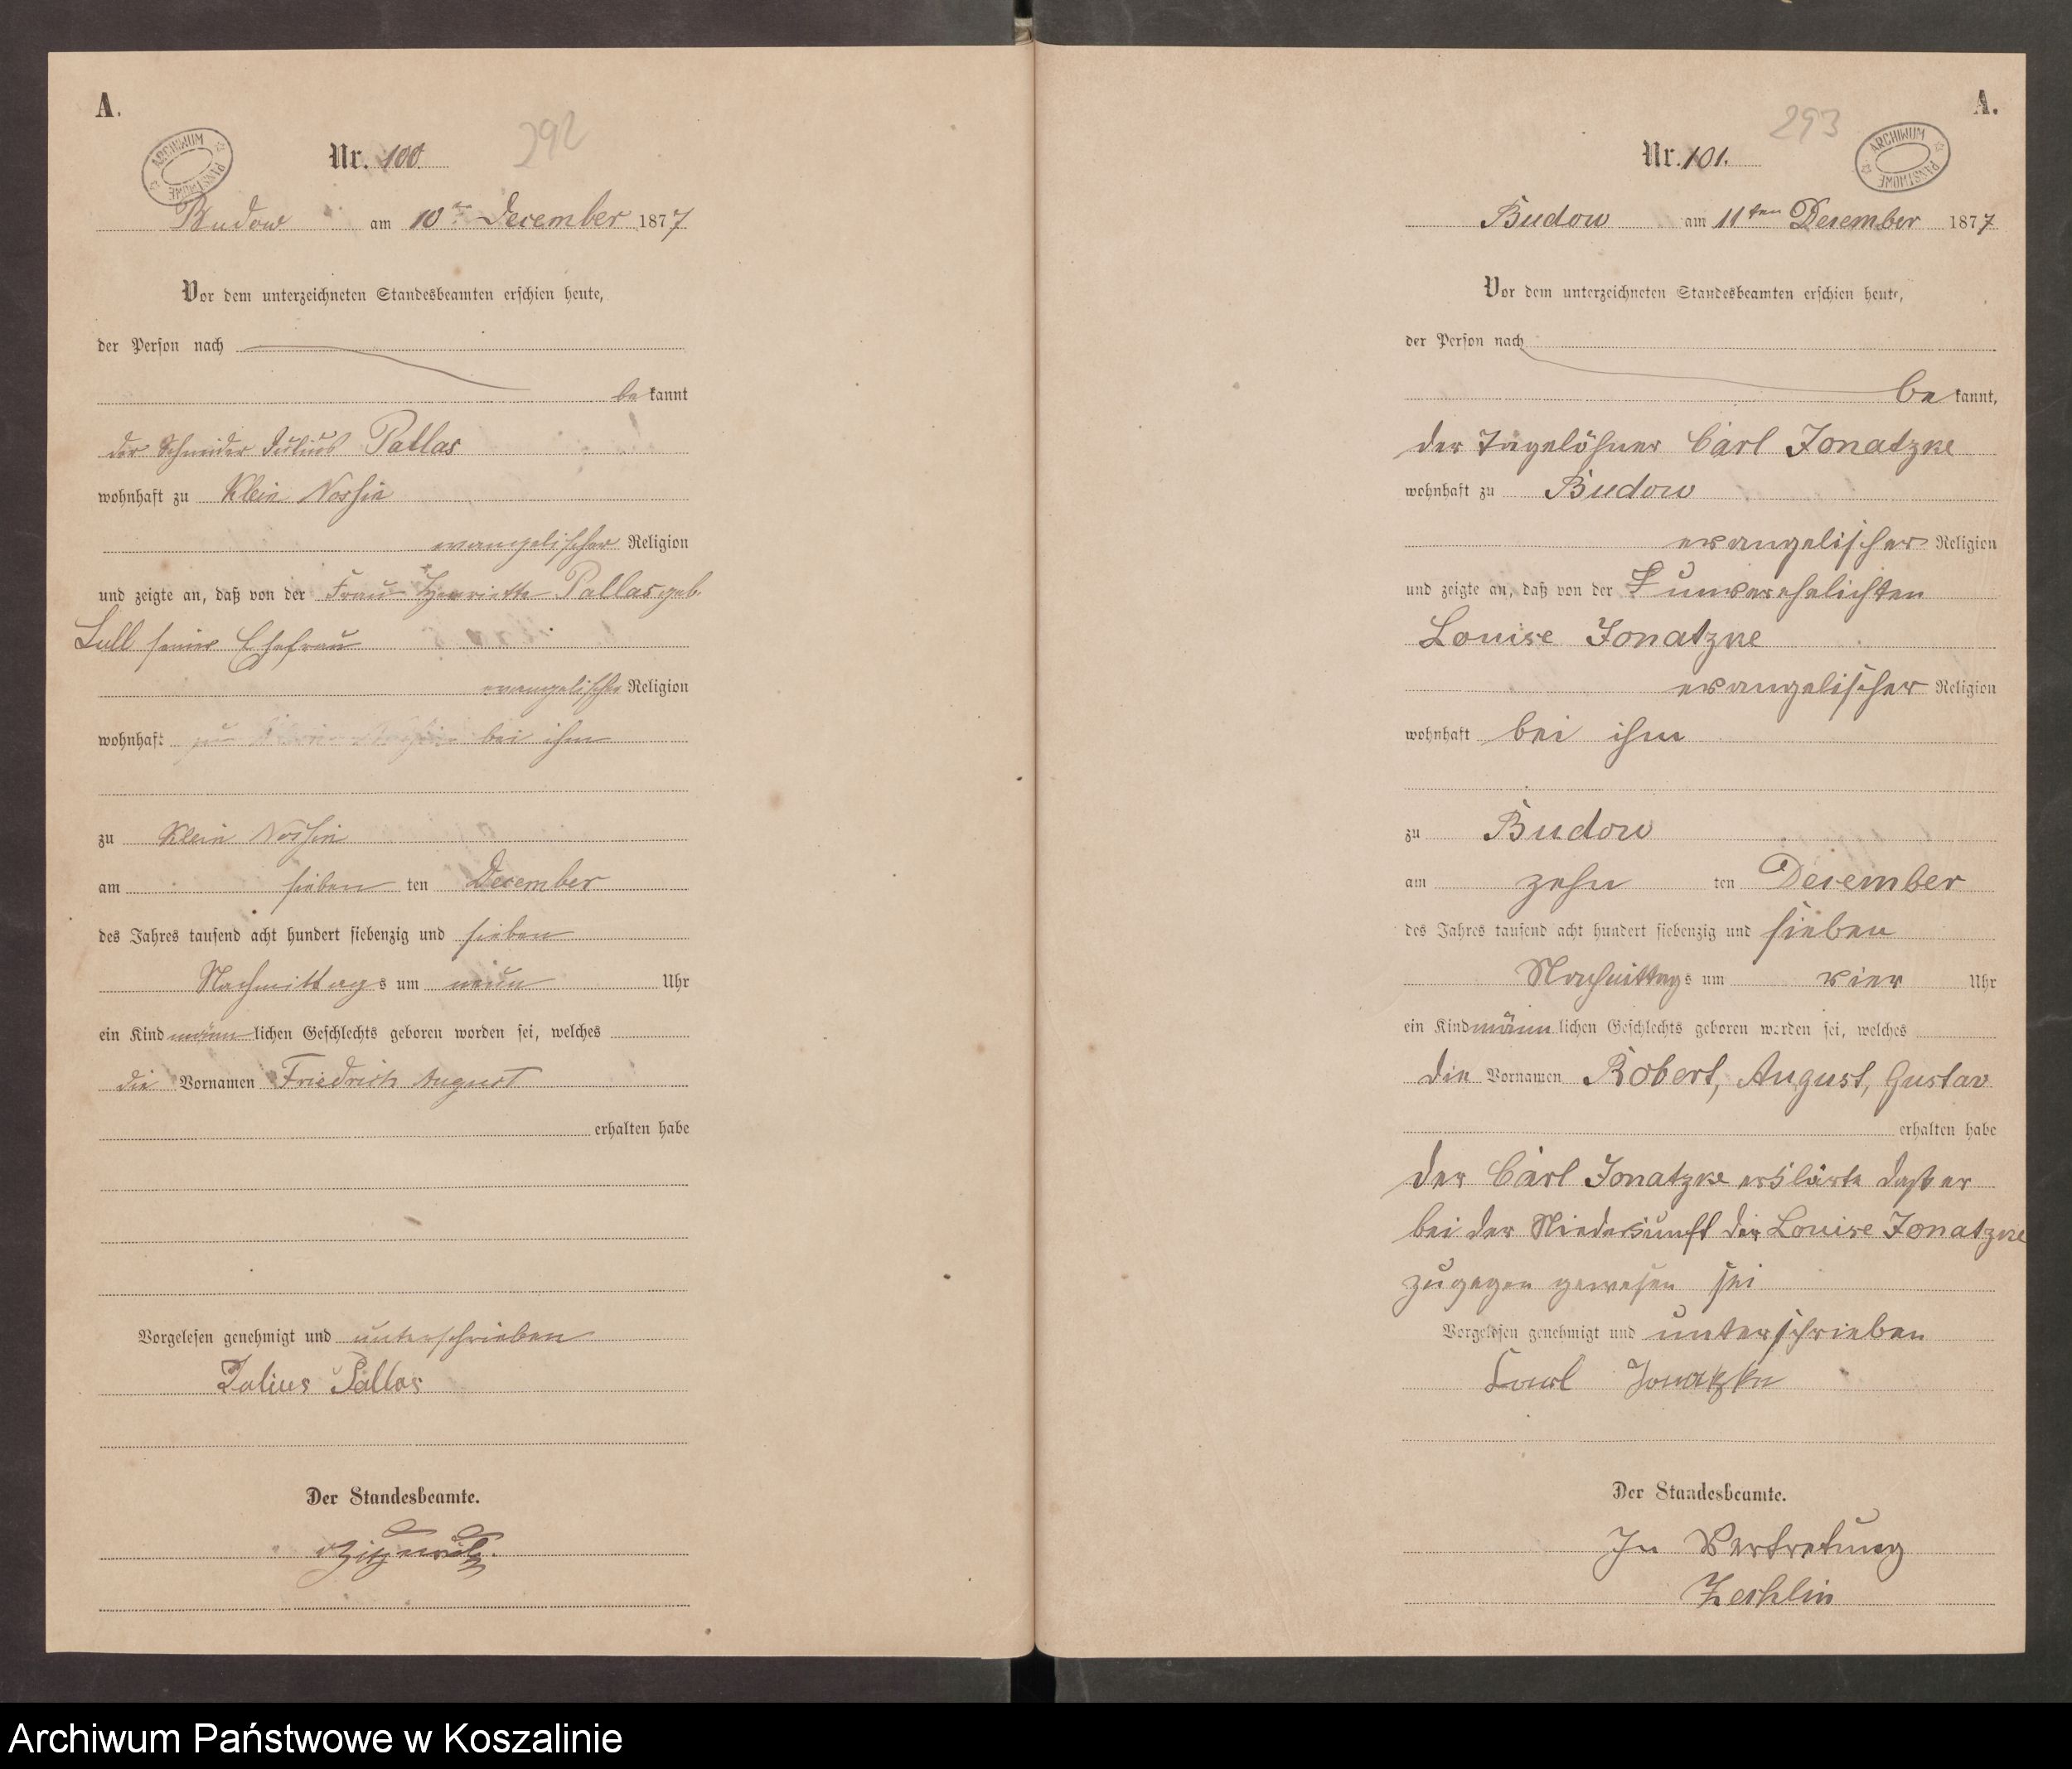 A.
292
ARCHIWUM PAŃSTWOWE
Nr. 100
Budow am 10ten December 1877
Vor dem unterzeichneten Standesbeamten erschien heute,
der Person nach
bekannt
der Schneider Julius Pallas
wohnhaft zu Klein Nossin
evangelischer Religion
und zeigte an, daß von der Frau Henriette Pallas geb.
Lull seiner Ehefrau
evangelischer Religion
wohnhaft bei ihm
zu Klein Nossin
am sieben ten December
des Jahres tausend acht hundert siebenzig und sieben
Nachmittags um neun Uhr
ein Kind männlichen Geschlechts geboren worden sei, welches
die Vornamen Friedrich August
erhalten habe
Vorgelesen genehmigt und unterschrieben
Julius Pallas
Der Standesbeamte.
v Zitzewitz.
A.
293
ARCHIWUM PAŃSTWOWE
Nr. 101.
Budow am 11ten December 1877
Vor dem unterzeichneten Standesbeamten erschien heute,
der Person nach
bekannt,
der Tagelöhner Carl Jonatzke
wohnhaft zu Budow
evangelischer Religion
und zeigte an, daß von der unverehelichten
Louise Jonatzke
evangelischer Religion
wohnhaft bei ihm
zu Budow
am zehn ten December
des Jahres tausend acht hundert siebenzig und sieben
Nachmittags um vier Uhr
ein Kind männlichen Geschlechts geboren worden sei, welches
die Vornamen Robert, August, Gustav
erhalten habe
Der Carl Jonatzke erklärte daß er
bei der Niederkunft der Louise Jonatzke
zugegen gewesen sei
Vorgelesen genehmigt und unterschrieben
Carl Jonatzke
Der Standesbeamte.
In Vertretung
Zechlin
Archiwum Państwowe w Koszalinie